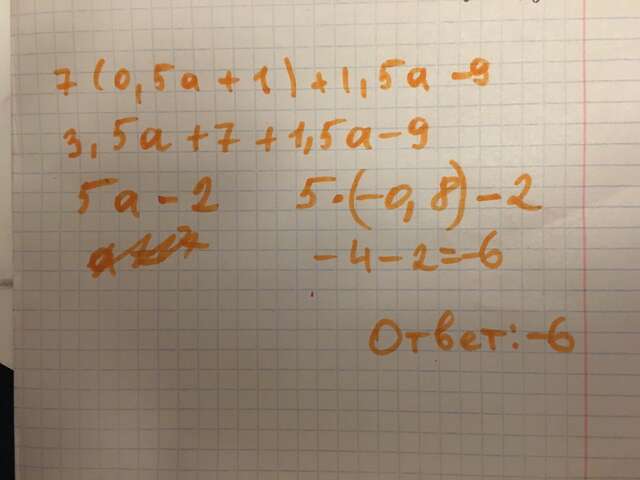 7(0,5a+1)+1,5a-9
3,5a+7+1,5a-9
5a-2 5·(-0,8)-2
-4-2=-6
Ответ:-6